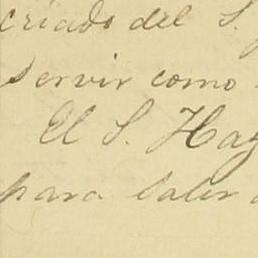 criado del S.
servir como
El S. Hay
para saler